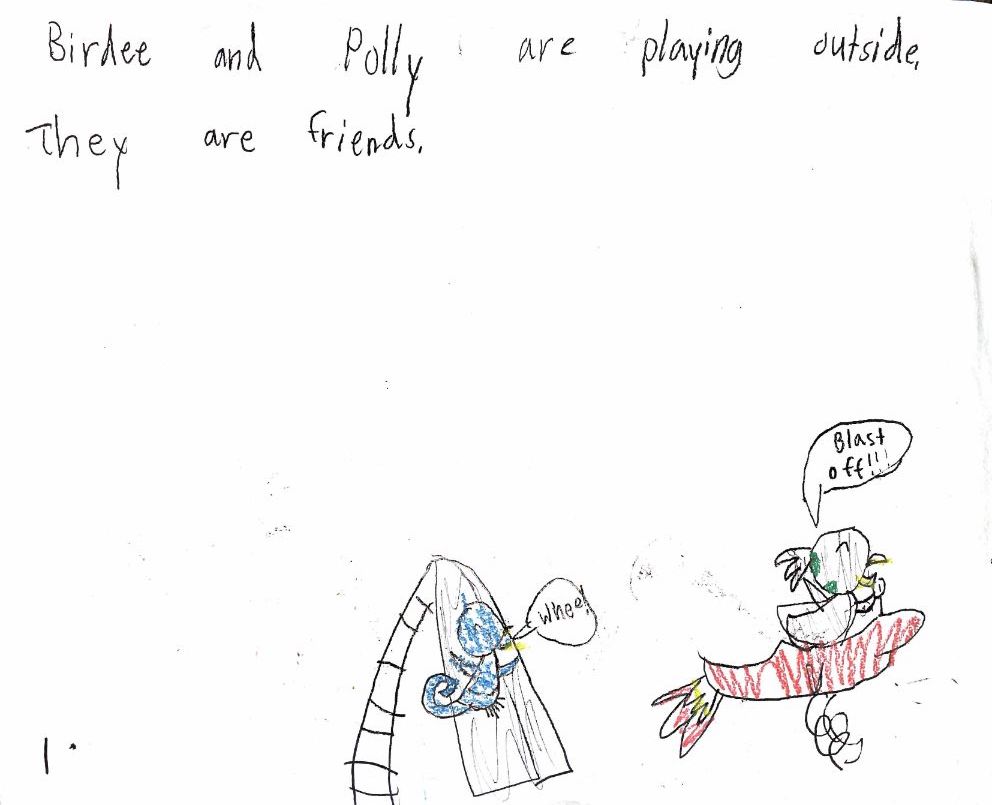 Birdee and Polly are playing outside.
They are friends.
Blast
off!!!
Whee!
1.